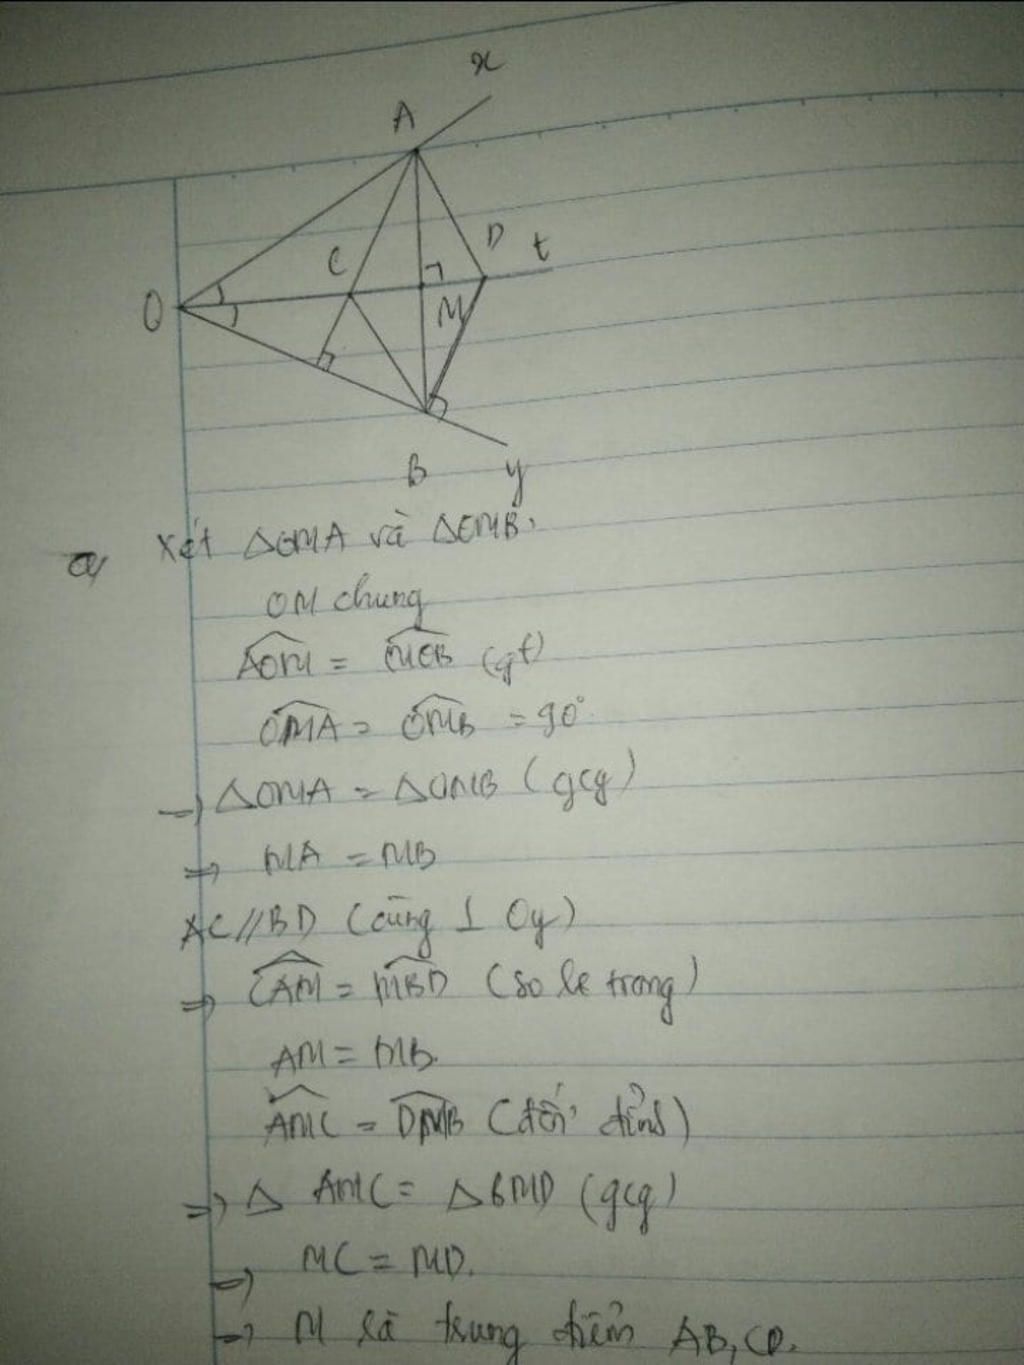 x
A
C
D
t
O
M
B
y
a, Xét ΔOMA và ΔOMB.
OM chung
AOM = MOB (gt)
OMA = OMB = 90°
→ ΔOMA = ΔOMB (gcg)
⇒ MA = MB
AC//BD (cùng ⊥ Oy)
⇒ CAM = MBD (so le trong)
AM = MB.
AMC = DMB (đối đỉnh)
⇒ Δ AMC = ΔBMD (gcg)
⇒ MC = MD.
⇒ M là trung điểm AB, CD.